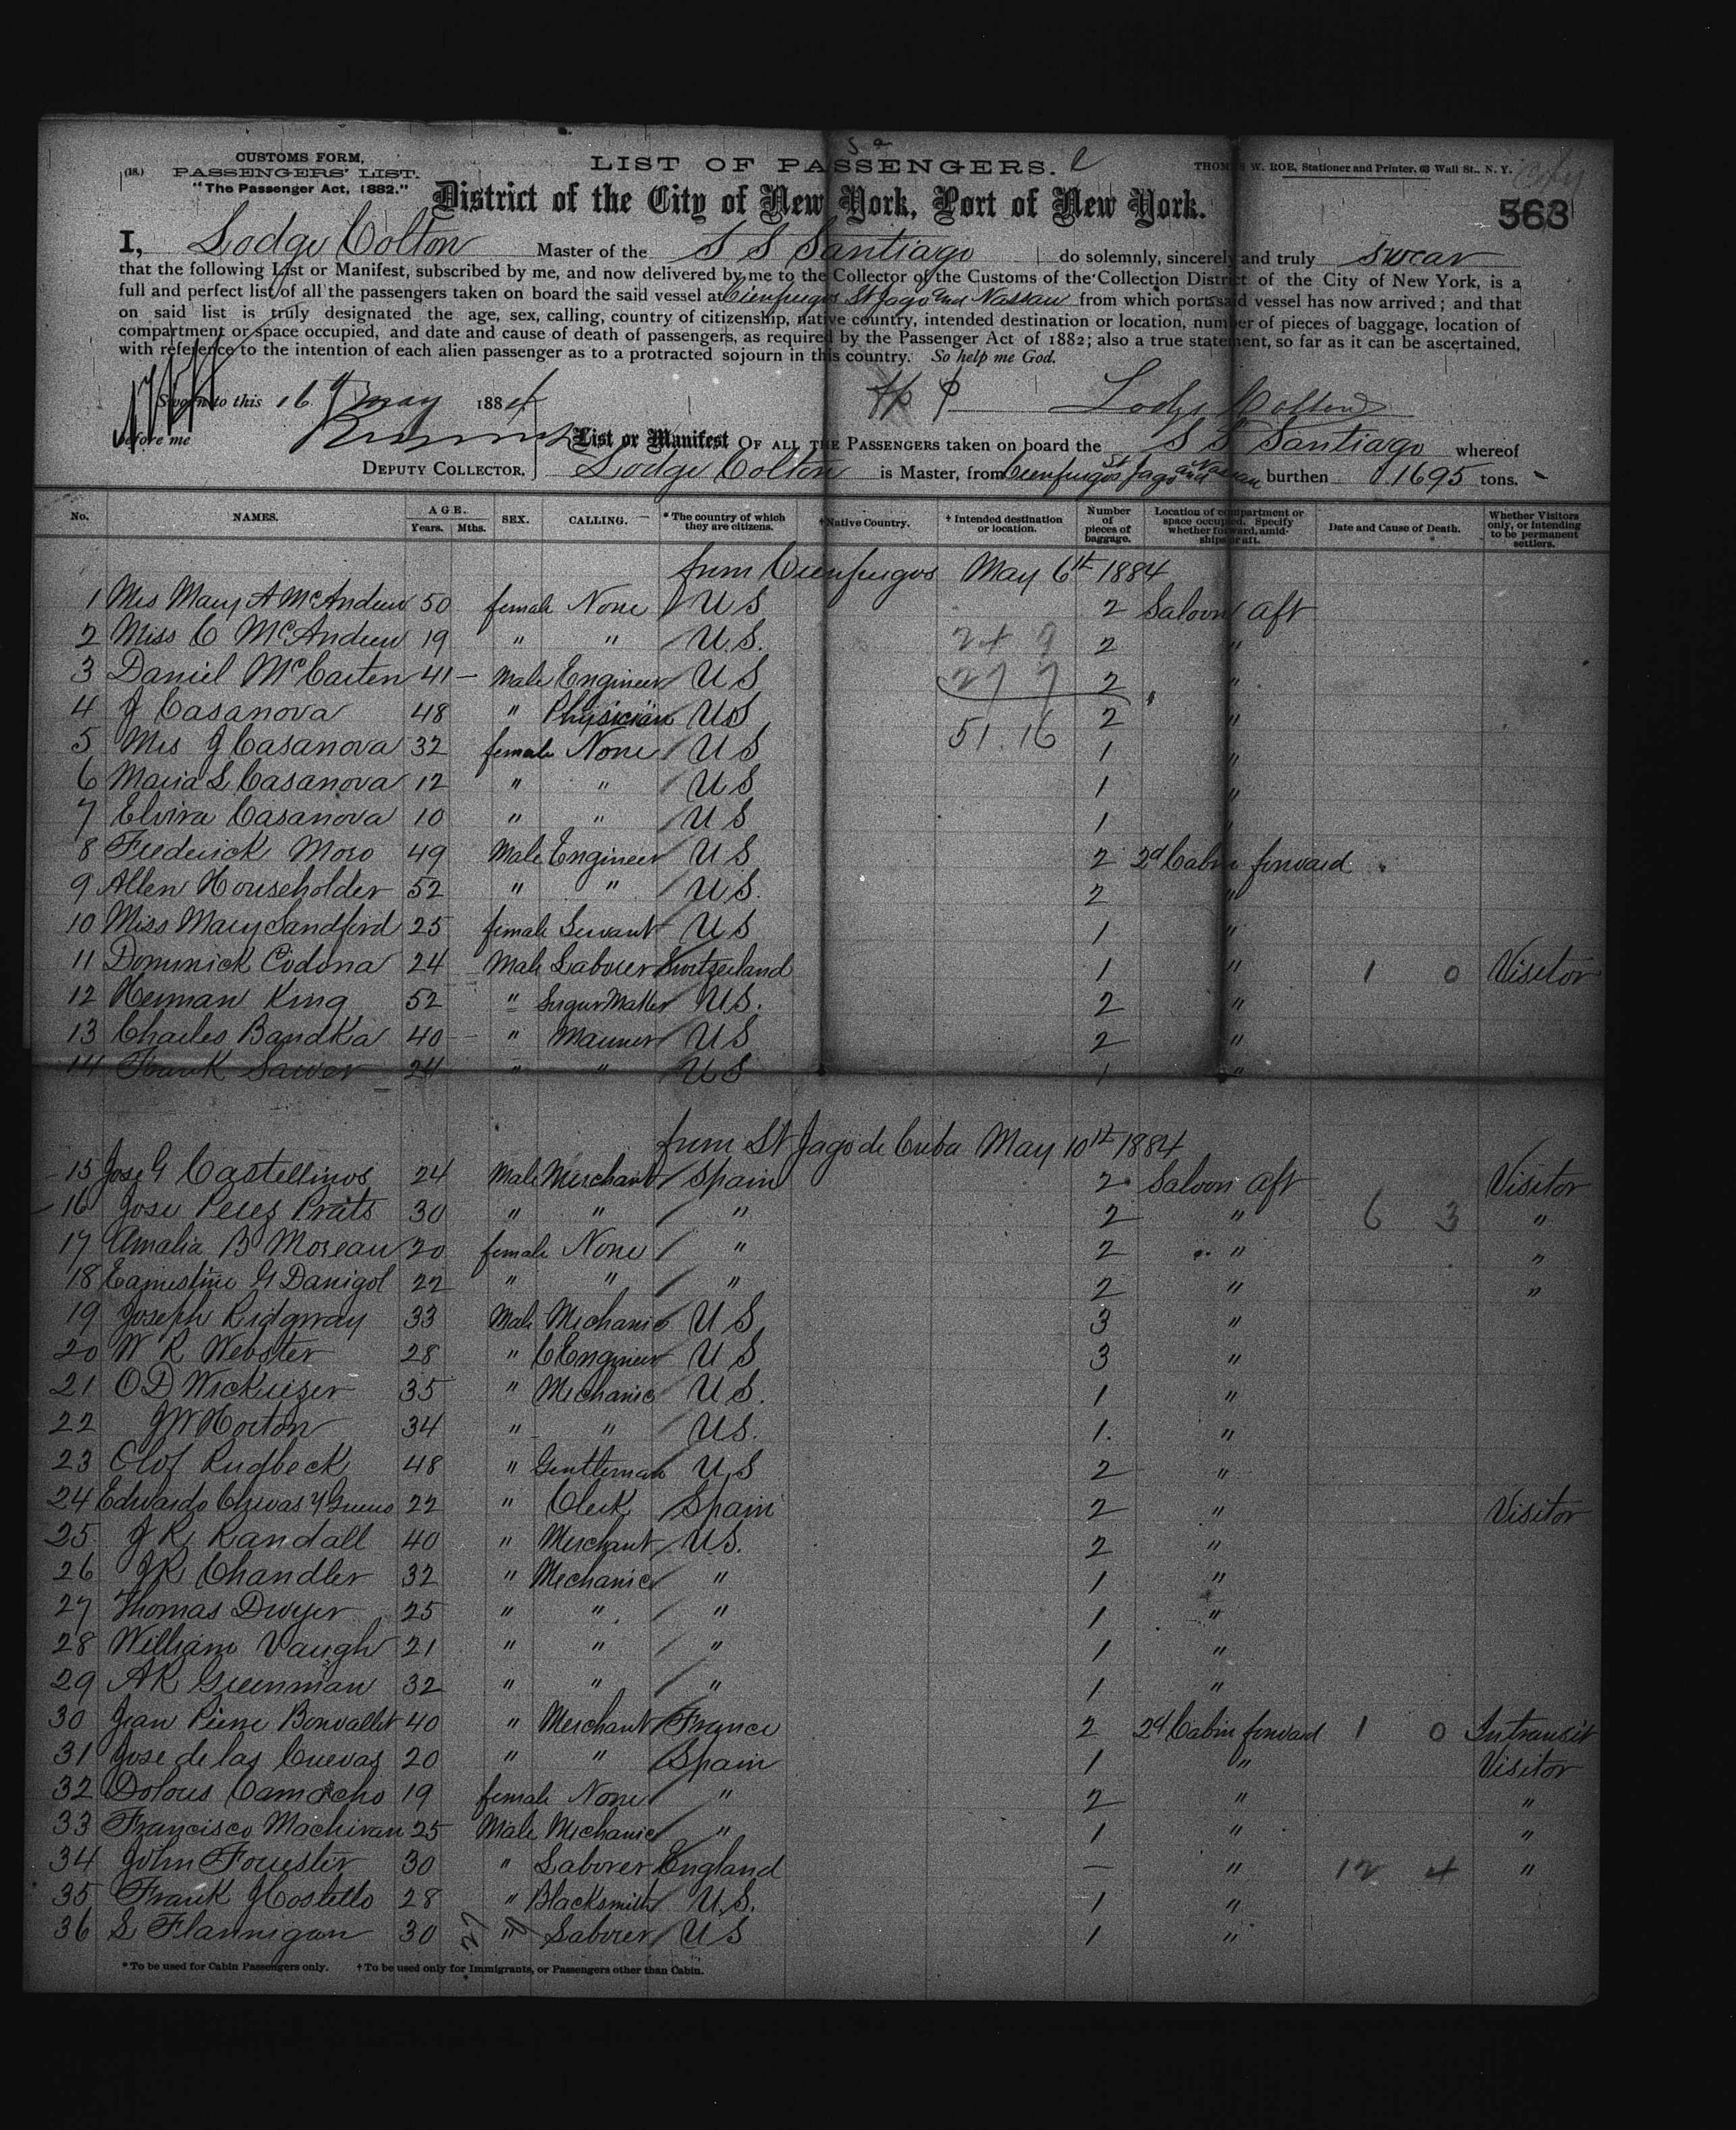 CUSTOMS FORM,
(18.) PASSENGERS' LIST.
"The Passenger Act, 1882."
LIST OF PASSENGERS.
THOMAS W. ROE, Stationer and Printer, 63 Wall St., N. Y.
District of the City of New York, Port of New York.
563
I, Lodge Colton Master of the S S Santiago do solemnly, sincerely and truly swear
that the following List or Manifest, subscribed by me, and now delivered by me to the Collector of the Customs of the Collection District of the City of New York, is a
full and perfect list of all the passengers taken on board the said vessel at Cienfuegos St Jago and Nassau from which port said vessel has now arrived; and that
on said list is truly designated the age, sex, calling, country of citizenship, native country, intended destination or location, number of pieces of baggage, location of
compartment or space occupied, and date and cause of death of passengers, as required by the Passenger Act of 1882; also a true statement, so far as it can be ascertained,
with reference to the intention of each alien passenger as to a protracted sojourn in this country. So help me God.
Sworn to this 16 May 1884
Lodge Colton
before me
DEPUTY COLLECTOR.
List or Manifest OF ALL THE PASSENGERS taken on board the S S Santiago whereof
Lodge Colton is Master, from Cienfuegos St Jago and Nassau burthen 1695 tons.
No. NAMES. AGE. Years. Mths. SEX. CALLING. * The country of which they are citizens. † Native Country. † Intended destination or location. Number of pieces of baggage. Location of compartment or space occupied. Specify whether forward, amidships or aft. Date and Cause of Death. Whether Visitors only, or intending to be permanent settlers.
from Cienfuegos May 6th 1884
1 Mrs Mary A McAndrew 50 female None U S 2 Saloon aft
2 Miss C McAndrew 19 " " U.S. 24 9 2 "
3 Daniel McCarten 41 – Male Engineer U S 27 7 2 "
4 J Casanova 48 " Physician US 2 "
5 Mrs J Casanova 32 female None U S 51.16 1 "
6 Maria L Casanova 12 " " U S 1 "
7 Elvira Casanova 10 " " U S 1 "
8 Frederick Moro 49 Male Engineer U S 2 2d Cabin forward
9 Allen Householder 52 " " U S. 2 "
10 Miss Mary Sandford 25 female Servant U S 1 "
11 Dominick Codona 24 Male Laborer Switzerland 1 " 1 0 Visitor
12 Herman King 52 " Sugar Maker U S. 2 "
13 Charles Bandka 40 – " Mariner U S 2 "
14 Frank Sawer 24 " " U S 1 "
from St Jago de Cuba May 10th 1884
15 Jose G Castellinos 24 Male Merchant Spain 2 Saloon aft Visitor
16 Jose Peres Prats 30 " " " 2 " 6 3 "
17 Amalia B Moreau 20 female None " 2 " "
18 G Danigol 22 " " " 2 " "
19 Joseph Ridgway 33 Male Mechanic U S 3 "
20 W R Webster 28 " C Engineer U S 3 "
21 O D Wickeiser 35 " Mechanic U S. 1 "
22 J W Horton 34 " " US. 1. "
23 Olof Rudbeck 48 " Gentleman U S 2 "
24 Edwardo Chivas y 22 " Clerk Spain 2 " Visitor
25 J R Randall 40 " Merchant U S. 2 "
26 J R Chandler 32 " Mechanic " 1 "
27 Thomas Dwyer 25 " " " 1 "
28 William Vaugh 21 " " " 1 "
29 A R Greenman 32 " " " 1 "
30 Jean Pierre Bonvallet 40 " Merchant France 2 2d Cabin forward 1 0 Intransit
31 Jose de las Cuevas 20 " " Spain 1 " Visitor
32 Dolores Camacho 19 female None " 2 " "
33 Francisco Machivan 25 Male Mechanic " 1 " "
34 John Forrester 30 " Laborer England – " 12 4 "
35 Frank J Costello 28 " Blacksmith U.S. 1 "
36 S Flannigan 30 27 " Laborer U S 1 "
* To be used for Cabin Passengers only. † To be used only for Immigrants, or Passengers other than Cabin.